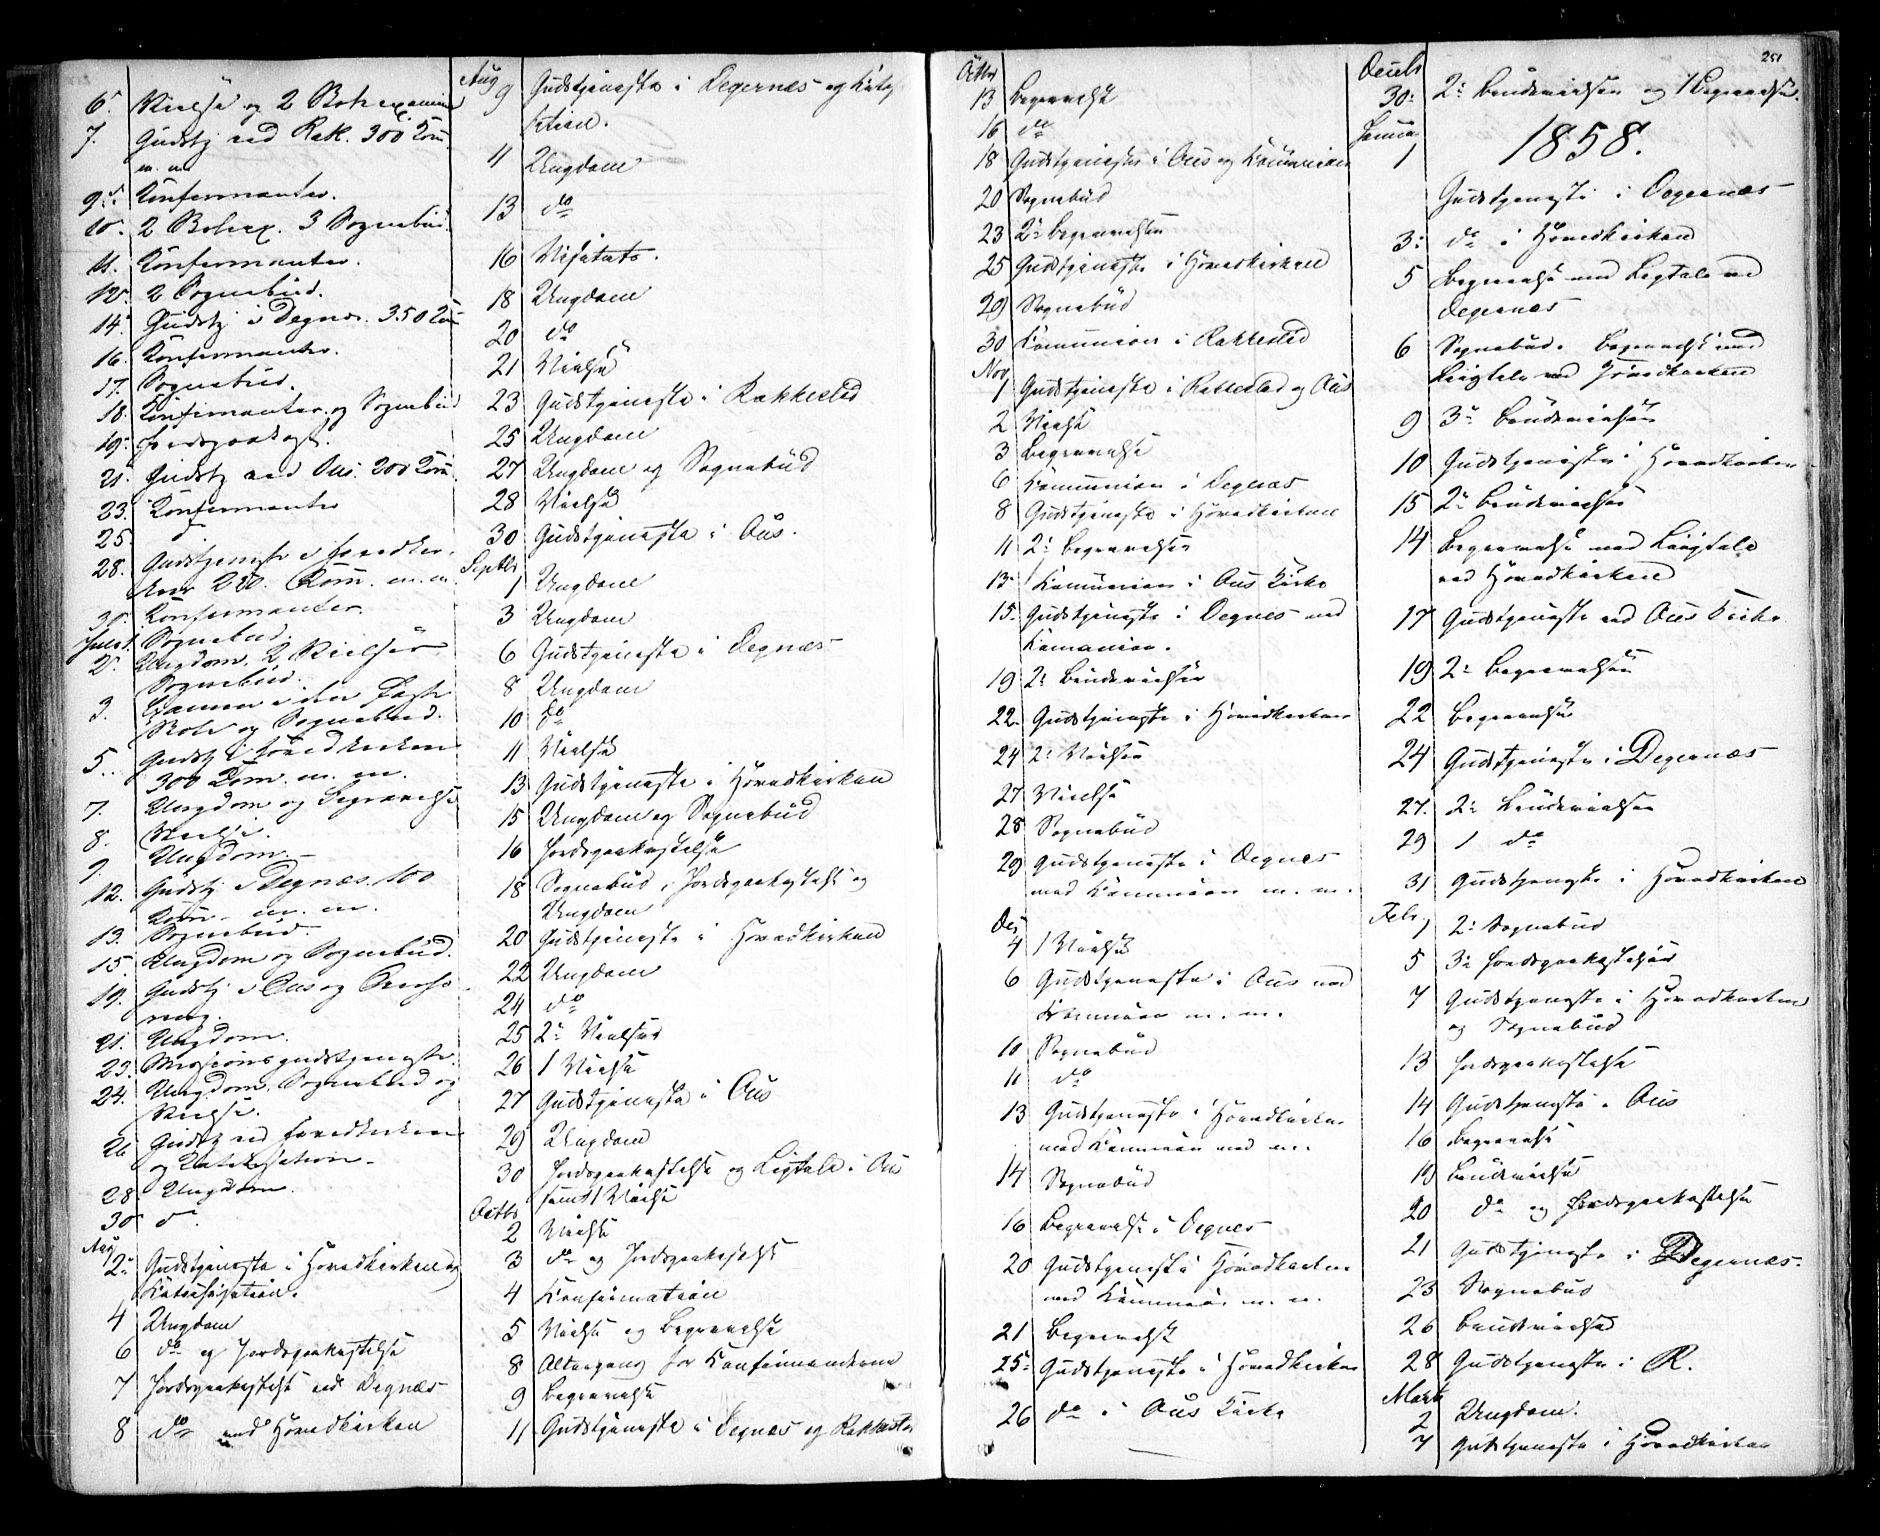 6. Vielse og 2 Bohexamina
7. Gudstj ved Rak. 300 Com
m. m
9. Konfirmanter.
10. 2 Bohex. 3 Sognebud.
11. Konfirmanter.
12. 2 Sognebud.
14. Gudstj i Degnæs. 350 Com
16. Konfirmanter.
17. Sognebud.
18. Konfirmanter og Sognebud
19. Jordspaakast.
21. Gudstj ved Aus. 200 Com
23. Konfirmanter
25.
28. Gudstjeneste i Hovedkir
ken 220. Com. m. m.
30. Konfirmanter.
Juli 1. Sognebud.
2. Ungdom. 2 Vielser
Sognebud.
3. Examen i den faste
Skole og Sognebud.
5. Gudstj i Hovedkirken
300 Com. m. m.
7. Ungdom og Begravelse
8. Vielse.
9. Ungdom
12. Gudstj i Degnæs. 100
Com. m. m.
13. Sognebud.
15. Ungdom og Sognebud.
19. Gudstj i Aus og
21. Ungdom.
23. Missionsgudstjeneste.
24. Ungdom, Sognebud og
Vielse.
26 Gudstj ved Hovedkirken
og Katekisation.
28. Ungdom.
30 do.
Aug
2. Gudstjeneste i Hovedkirken og
Katechisation.
4 Ungdom
6 do og Jordspaakastelse
7 Jordspaakastelse ved Degnæs
8 do ved Hovedkirken
Aug
9 Gudstjeneste i Degernæs og Kate
sation.
11 Ungdom
13 do
16 Visitats.
18 Ungdom
20 do
21 Vielse
23 Gudstjeneste i Rakkestad
25 Ungdom
27 Ungdom og Sognebud
28 Vielse
30 Gudstjeneste i Aus.
Septbr
1 Ungdom
3 Ungdom
6 Gudstjeneste i Degnæs
8 Ungdom
10 do
11 Vielse
13 Gudstjeneste i Hovedkirken
15 Ungdom og Sognebud
16 Jordspaakastelse
18 Sognebud, Jordspaakastelse og
Ungdom
20 Gudstjeneste i Hovedkirken
22 Ungdom
24 do
25 2 Vielser
26 1 Vielse
27 Gudstjeneste i Aus
29 Ungdom
30 Jordspaakastelse og Ligtale i Aus
samt 1 Vielse
Octbr
2 Vielse
3 do og Jordspaakastelse
4 Konfirmation
5 Vielse og Begravelse
8 Altergang for Konfirmanderne
9 Begravelse
11 Gudstjeneste i Degnæs og Rakkestad
Octbr
13 Begravelse
16 do
18 Gudstjeneste i Aus og Communion
20 Sognebud
23 2 Begravelser
25 Gudstjeneste i Hovedkirken
29 Sognebud
30 Communion i Rakkestad
Nov
1 Gudstjeneste i Rakkestad og Aus
2 Vielse
3 Begravelse
6 Communion i Degnæs
8 Gudstjeneste i Hovedkirken
11 2 Begravelser
13 Communion i Aus Kirke
15 Gudstjeneste i Degnes med
Comunion.
19 2 Bindevielser
22 Gudstjeneste i Hovedkirken
24 2 Vielser
27 Vielse
28 Sognebud
29 Gudstjeneste i Degnæs
med Communion m. m.
Des
4 1 Vielse
6 Gudstjeneste i Aus med
Communion m. m.
10 Sognebud
11 do
13 Gudstjeneste i Hovedkirken
med Communion med m.
14 Sognebud
16 Begravelse i Degnes
20 Gudstjeneste Hovedkirken
med Communion m. m.
21 Begravelse
25 Gudstjeneste i Hovedkirken
26 do i Aus Kirke
251
Decbr
30 2 Bindevielser og 1 Begravelse.
Januar
1 1858.
Gudstjeneste i Degernæs
3 do i Hovedkirken
5 Begravelse med Ligtale ved
Degernæs
6 Sognebud. Begravelse med
Liigtale ved Hovedkirken
9 3 Bindevielser
10 Gudstjeneste i Hovedkirken
15 2 Bindevielser
14 Begravelse med Liigtale
ved Hovedkirken
17 Gudstjeneste ved Aus Kirke
19 2 Begravelser
22 Begravelse
24 Gudstjeneste i Degernæs
27. 2 Bindevielser
29 1 do
31 Gudstjeneste i Hovedkirken
Febr
1 2 Sognebud
5 3 Jordspaakastelser
7 Gudstjeneste i Hovedkirken
og Sognebud
13 Jordspaakastelse
14 Gudstjeneste i Aus
16 Begravelse
19 Bindevielse
20 do og Jordspaakastelse
21 Gudstjeneste i Degernæs.
23 Sognebud
26 Bindevielse
28 Gudstjeneste i R.
Marts
2 Ungdom.
7 Gudstjeneste i Hovedkirken